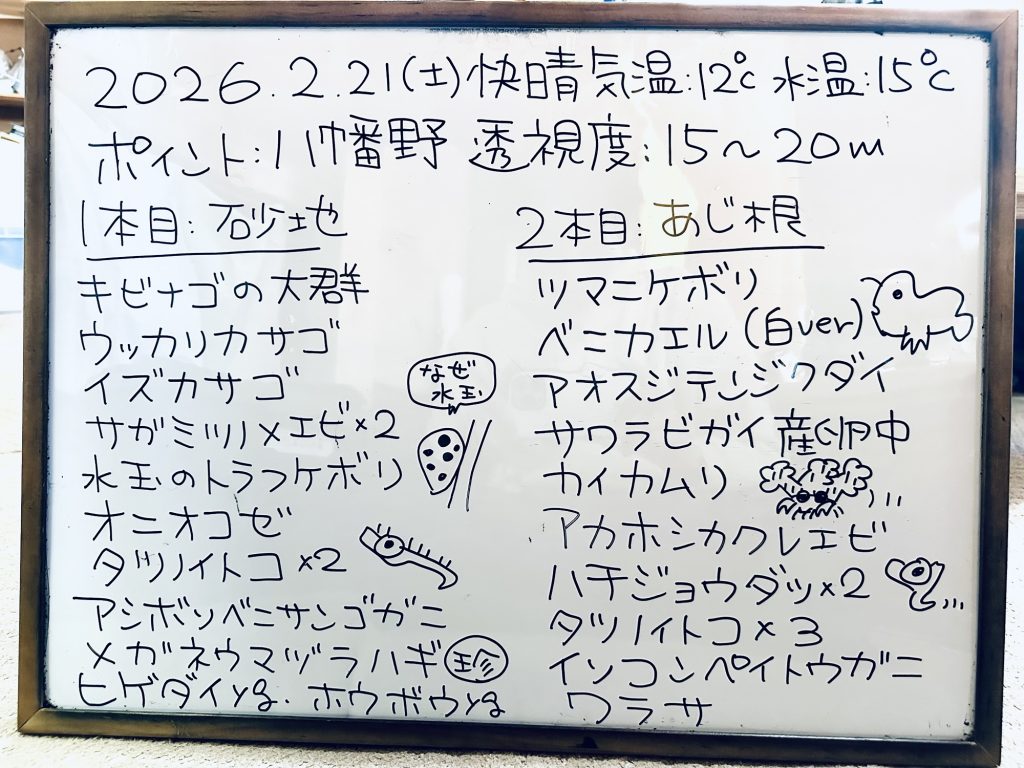 2026.2.21(土)快晴気温:12℃ 水温:15℃
ポイント:八幡野 透視度:15〜20m
1本目:砂地
キビナゴの大群
ウッカリカサゴ
イズカサゴ
サガミツノメエビ×2
水玉のトラフケボリ
なぜ
水玉
オニオコゼ
タツノイトコ×2
アシボソベニサンゴガニ
メガネウマヅラハギ 珍
ヒゲダイyg. ホウボウyg
2本目:あじ根
ツマニケボリ
ベニカエル(白ver)
アオスジテンジクダイ
サワラビガイ産卵中
カイカムリ
アカホシカクレエビ
ハチジョウダツ×2
タツノイトコ×3
イソコンペイトウガニ
ワラサ